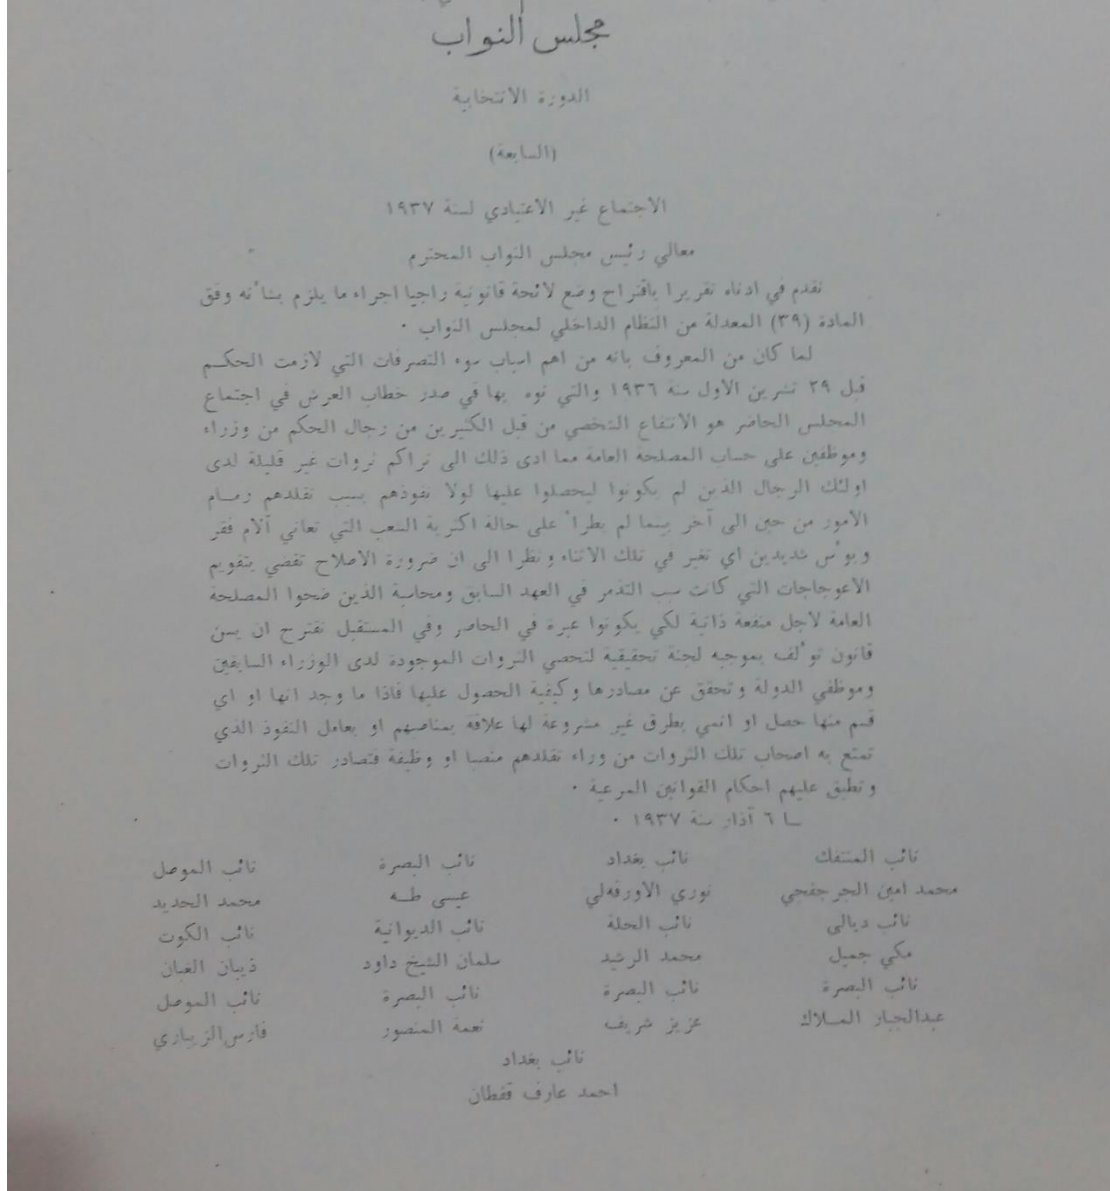 مجلس النواب
الدورة الانتخابية
(السابعة)
الاجتماع غير الاعتيادي لسنة ١٩٣٧
معالي رئيس مجلس النواب المحترم
نقدم في ادناه تقريرا باقتراح وضع لائحة قانونية راجيا اجراء ما يلزم بشأنه وفق
المادة (٣٩) المعدلة من النظام الداخلي لمجلس النواب ٠
لما كان من المعروف بانه من اهم اسباب سوء التصرفات التي لازمت الحكـم
قبل ٢٩ تشرين الاول سنة ١٩٣٦ والتي نوه بها في صدر خطاب العرش في اجتماع
المجلس الحاضر هو الانتفاع الشخصي من قبل الكثيرين من رجال الحكم من وزراء
وموظفين على حساب المصلحة العامة مما ادى ذلك الى تراكم ثروات غير قليلة لدى
اولئك الرجال الذين لم يكونوا ليحصلوا عليها لولا نفوذهم بسبب تقلدهم زمـام
الامور من حين الى آخر بينما لم يطرأ على حالة اكثرية الشعب التي تعاني آلام فقر
وبؤس شديدين اي تغير في تلك الاثناء ونظرا الى ان ضرورة الاصلاح تقضي بتقويم
الاعوجاجات التي كانت سبب التذمر في العهد السابق ومحاسبة الذين ضحوا المصلحة
العامة لاجل منفعة ذاتية لكي يكونوا عبرة في الحاضر وفي المستقبل نقترح ان يسن
قانون تؤلف بموجبه لجنة تحقيقية لتحصي الثروات الموجودة لدى الوزراء السابقين
وموظفي الدولة وتحقق عن مصادرها وكيفية الحصول عليها فاذا ما وجد انها او اي
قسم منها حصل او انمي بطرق غير مشروعة لها علاقة بمناصبهم او بعامل النفوذ الذي
تمتع به اصحاب تلك الثروات من وراء تقلدهم منصبا او وظيفة فتصادر تلك الثروات
وتطبق عليهم احكام القوانين المرعية ٠
٦ آذار سنة ١٩٣٧ ٠
نائب المنتفك نائب بغداد نائب البصرة نائب الموصل
محمد امين الجرجفجي نوري الاورفه‌لي عيسى طـه محمد الحديد
نائب ديالى نائب الحلة نائب الديوانية نائب الكوت
مكي جميل محمد الرشيد سلمان الشيخ داود ذيبان الغبان
نائب البصرة نائب البصرة نائب البصرة نائب الموصل
عبدالجبار المـلاك عزيز شريف نعمة المنصور فارس الزيباري
نائب بغداد
احمد عارف قفطان